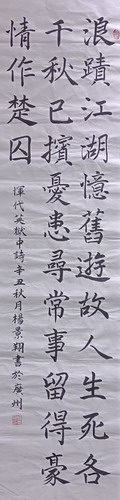 浪蹟江湖憶舊遊故人生死各
千秋已擯憂患尋常事留得豪
情作楚囚
惲代英獄中詩辛丑秋月楊景翔書於廣州